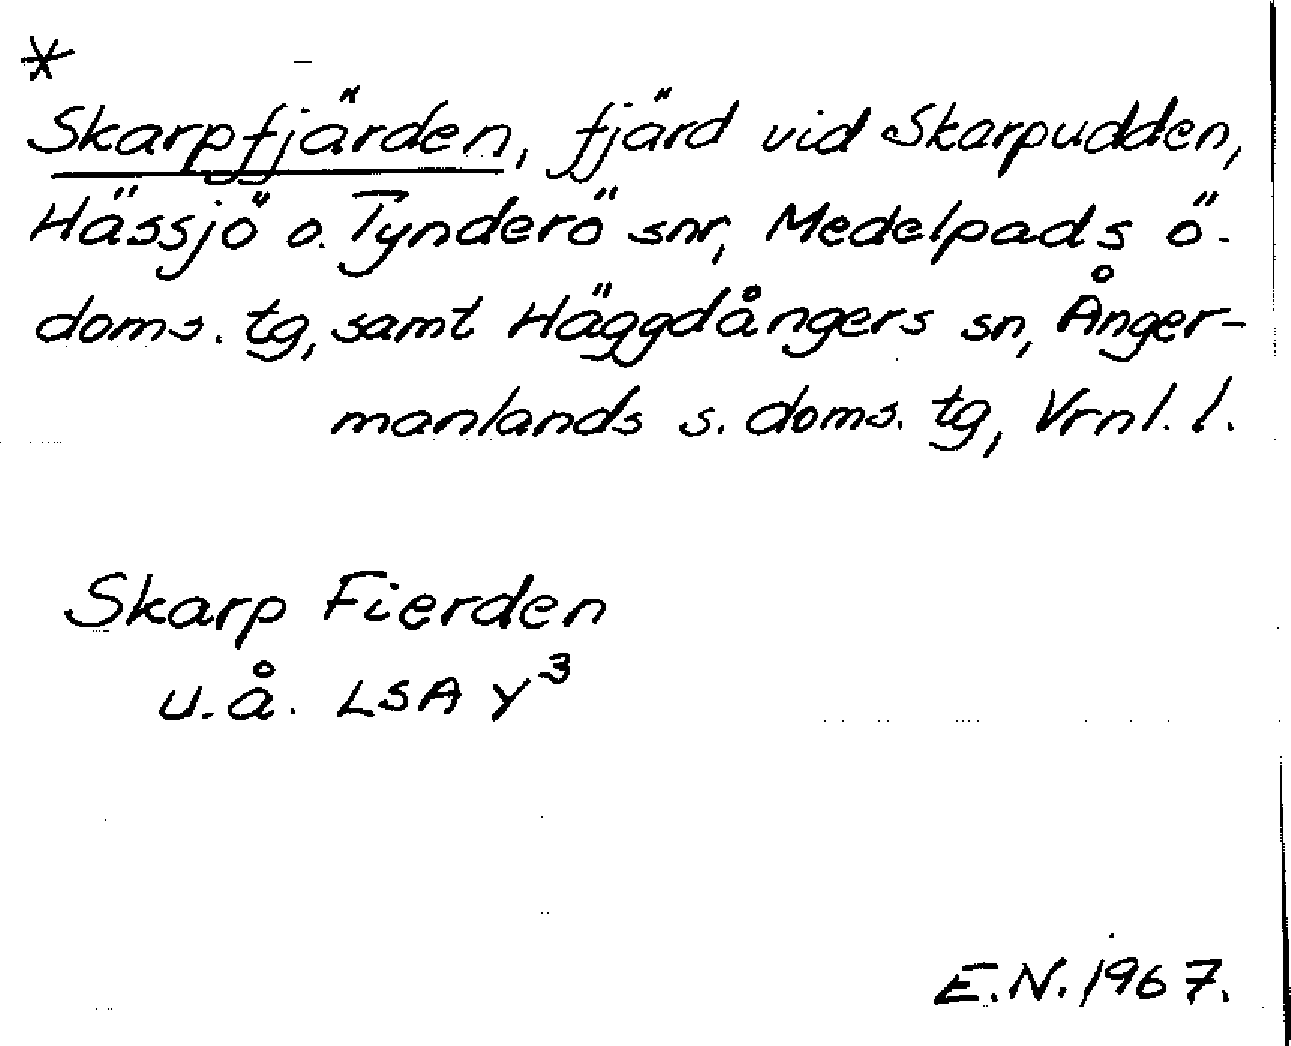 *
Skarpfjärden, fjärd vid Skarpudden,
Hässjö o. Tynderö snr, Medelpads ö.
doms. tg, samt Häggdångers sn, Ånger-
manlands s. doms. tg, Vrnl. l.
Skarp Fierden
u.å. LSA Y³
E.N. 1967.